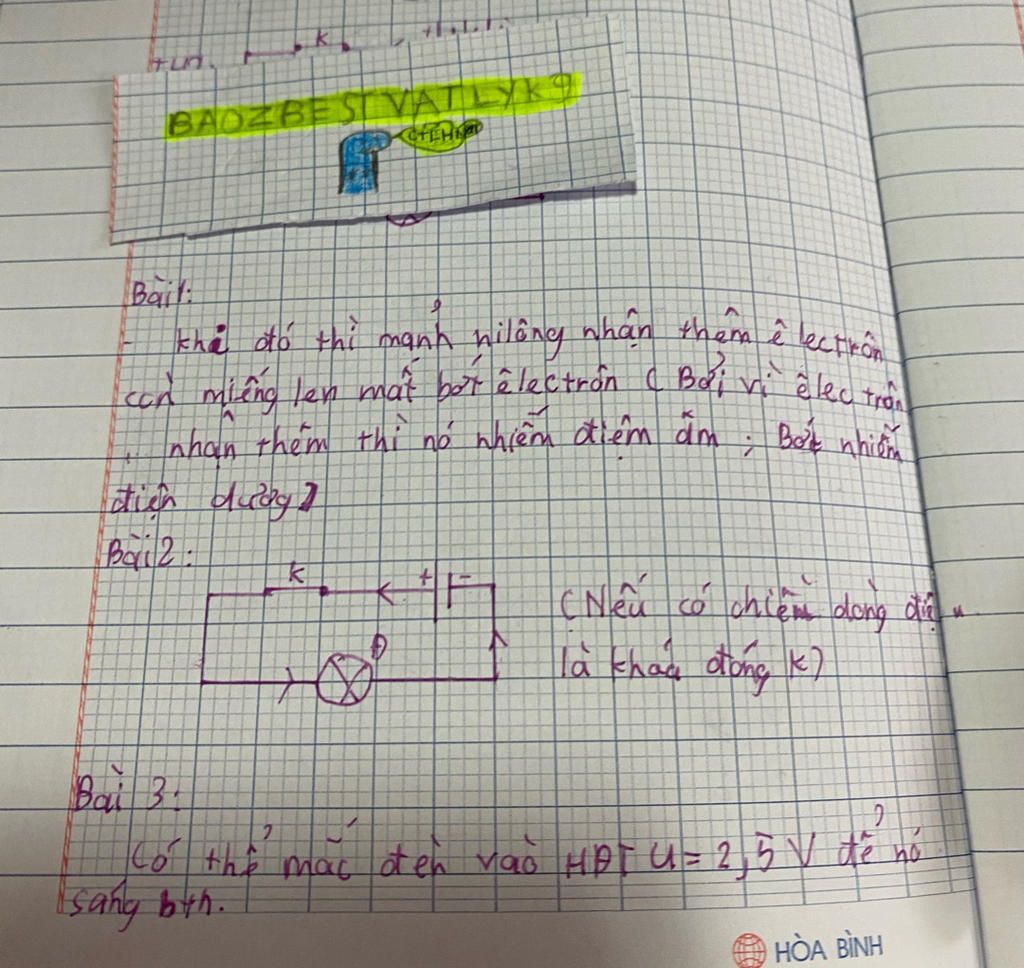 K
BAOZBESTVATLYK9
Bài 1:
- khi đó thì mảnh nilông nhận thêm êlectrôn
còn miếng len mất bớt êlectrôn ( Bởi vì êlectrôn
nhận thêm thì nó nhiễm điệm âm ; Bớt nhiễm
điện dương)
Bài 2:
K + -
Đ
(Nếu có chiều dòng điện
là khoá đóng K)
Bài 3:
Có thể mắc đèn vào HĐT U = 2,5 V để nó
sáng bth.
HÒA BÌNH